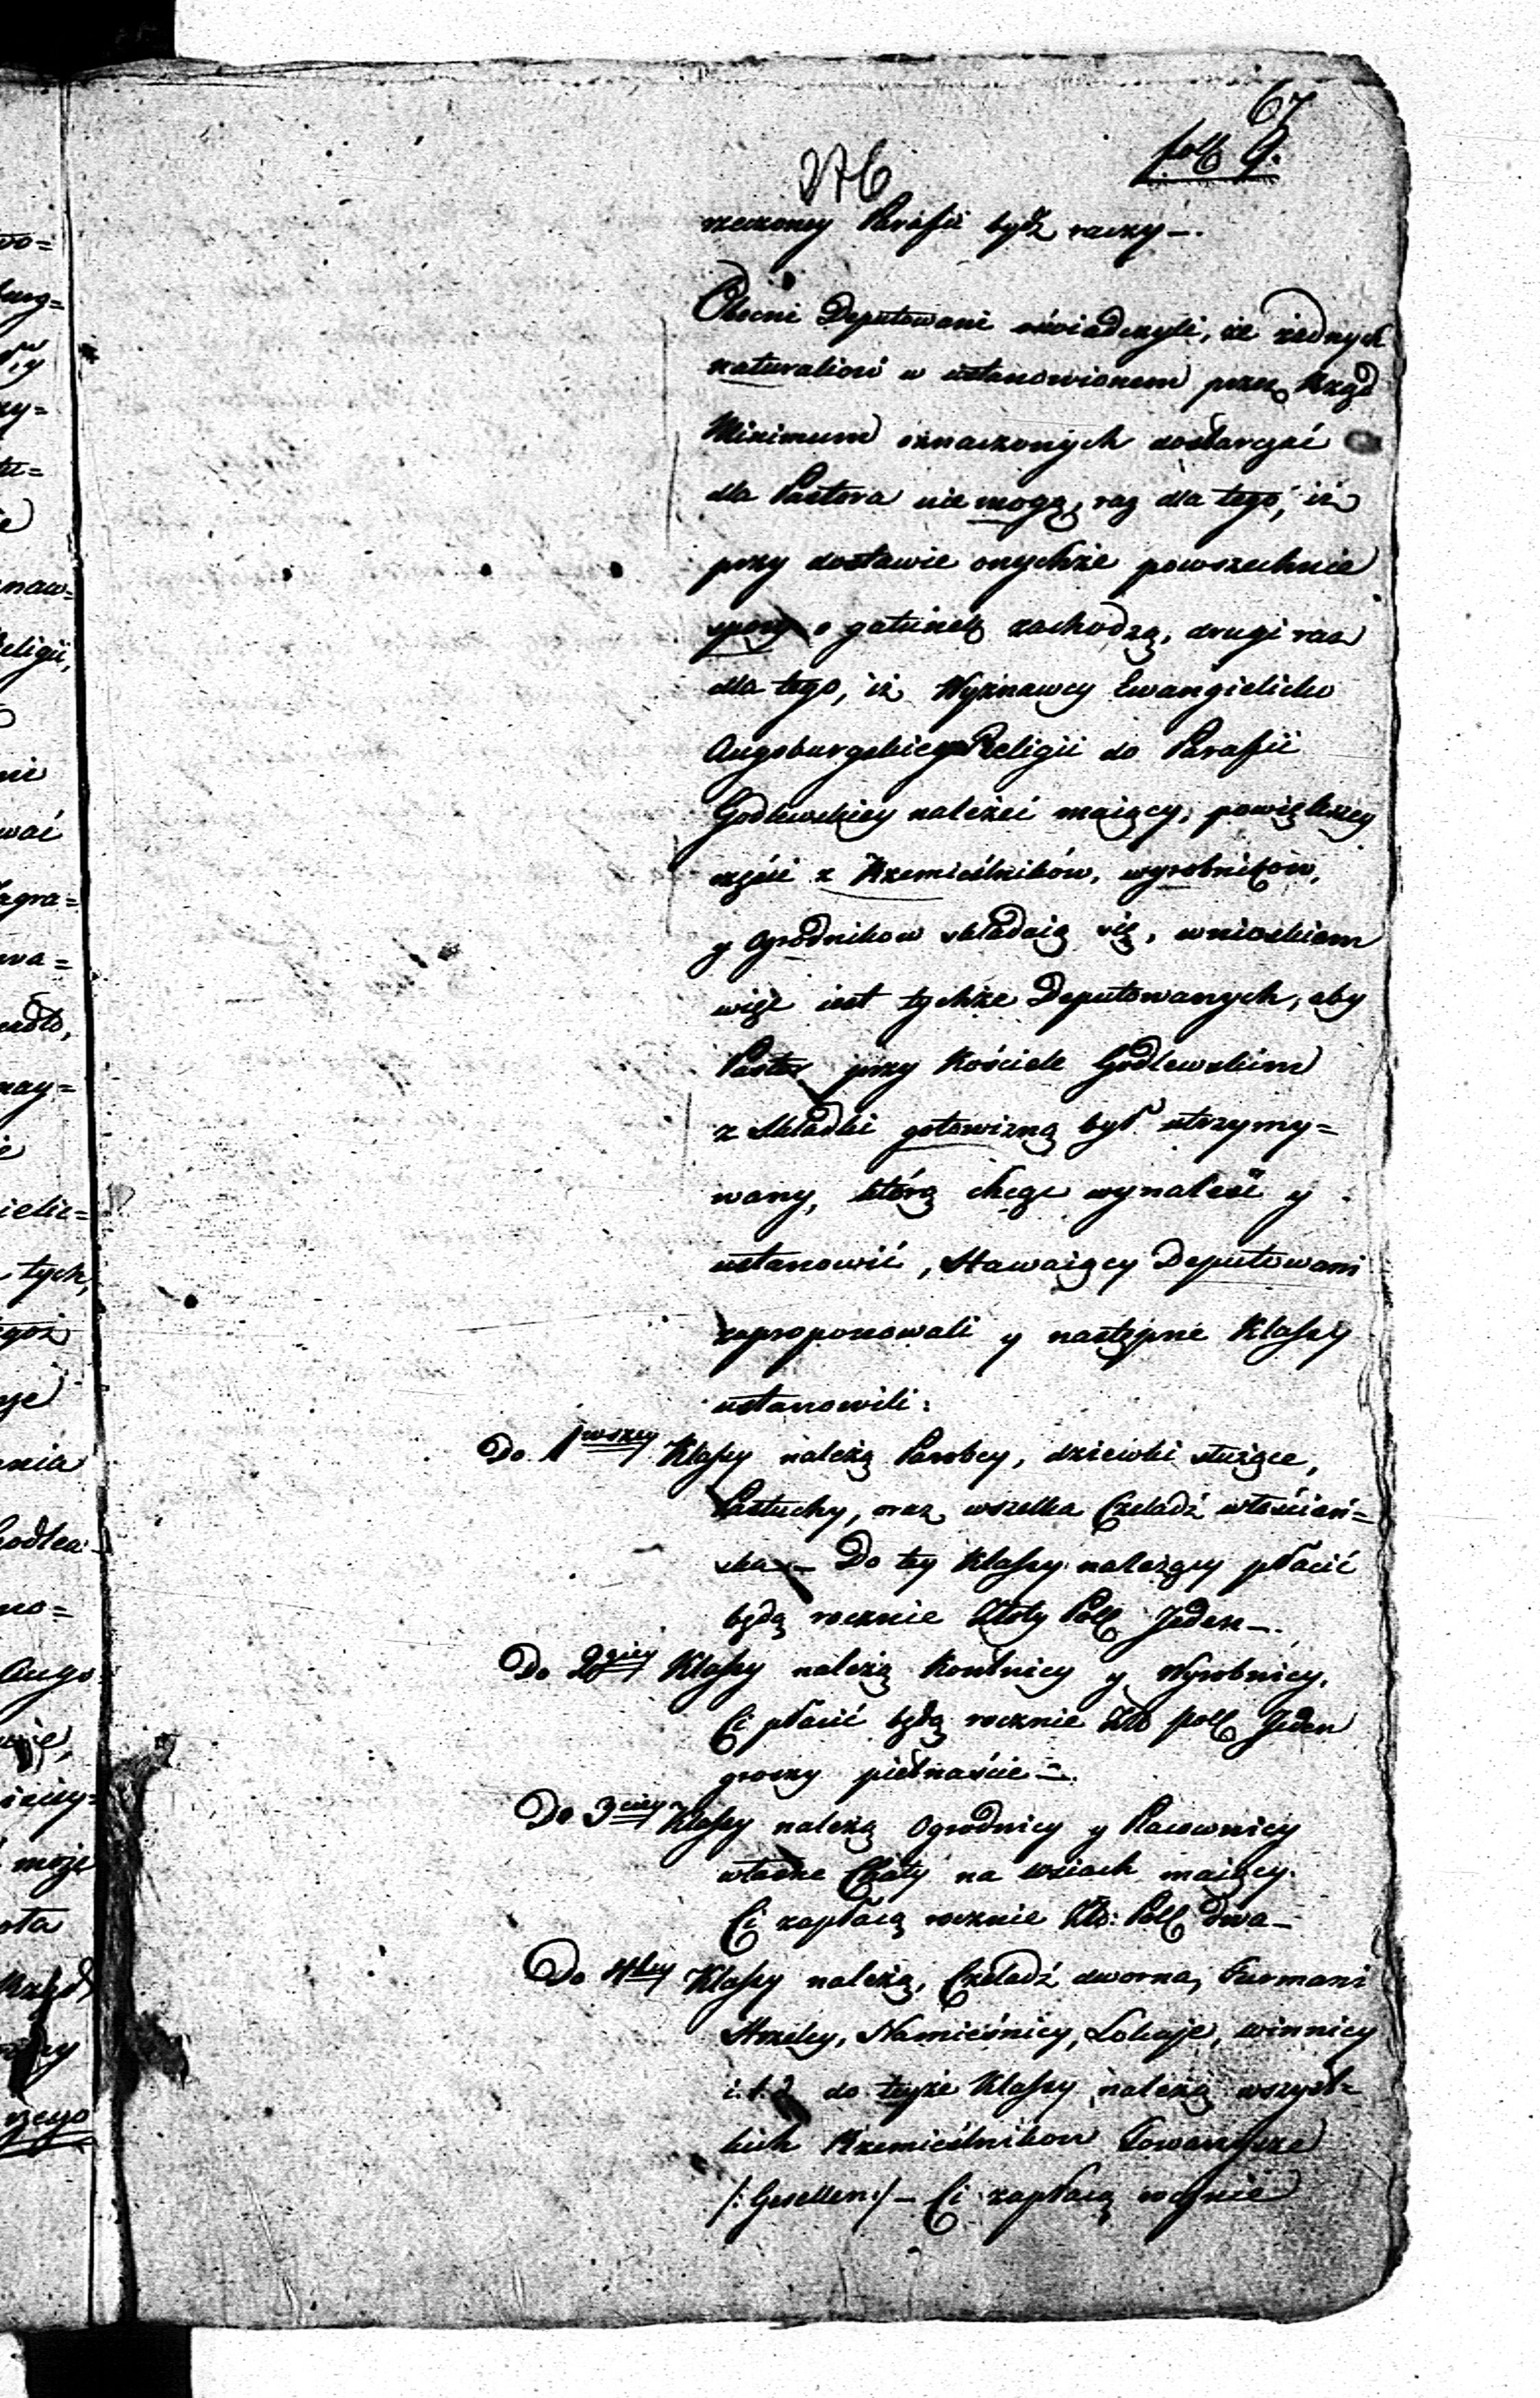 67
fol 9.
276
rzeczoney Parafii bydź raczy —.
Obecni Deputowani oświadczyli, że żadnych
naturaliów w ustanowionem przez Rząd
Minimum oznaczonych dostarczać
dla Pastora nie mogą, raz dla tego, iż
przy dostawie onychże powszechnie
spory o gatunek zachodzą, drugi raz
dla tego, iż Wyznawcy Ewangielicko
Augsburgskiey Religii do Parafii
Godlewskiey należeć maiący, powiększey
części z Rzemieślników, wyrobników,
y Ogrodnikow składaią się, wnioskiem
więc iest tychże Deputowanych, aby
Pastor przy Kościele Godlewskim
z Składki gotowizną był utrzymy=
wany, którą chcąc wynaleść y
ustanowić, Stawaiący Deputowani
zaproponowali y następne Klassy
ustanowili:
Do 1wszey Klassy należą Parobcy, dziewki służące,
Pastuchy, oraz wszelka Czeladź włościań=
ska — Do tey Klassy należący płacić
będą rocznie Złoty Poll Jeden —.
Do 2giey Klassy należą Komornicy y Wyrobnicy,
Ci płacić będą rocznie Złł poll Jeden
groszy pietnaście —.
Do 3ciey Klassy należą Ogrodnicy y Pracownicy
własne Chaty na wsiach maiący.
Ci zapłacą rocznie Złł: Poll dwa —
Do 4tey Klassy należą, Czeladź dworna, Furmani
Strzelcy, Namieśnicy, Lokaje, winnicy
i.t.d. do teyże Klassy należą wszyst=
kich Rzemieślnikow Towarzysze
/: Gesellen :/ — Ci zapłacą rocznie